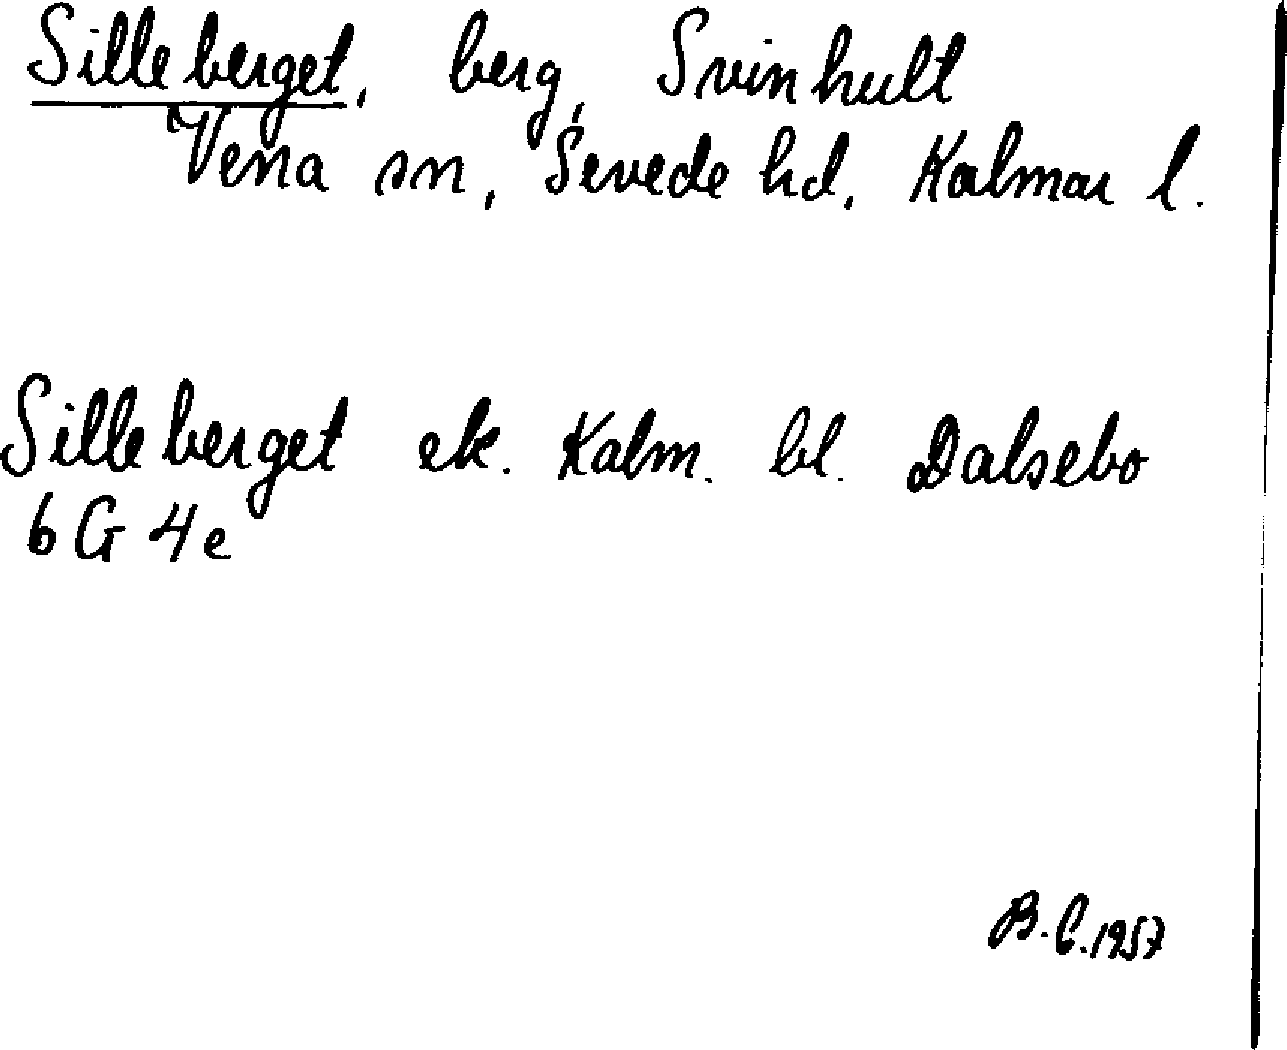 Silleberget, berg, Svinhult
Vena sn, Sevede hd, Kalmar l.
Silleberget ek. Kalm. bl. Dalsebo
6G 4e
B.C. 1957